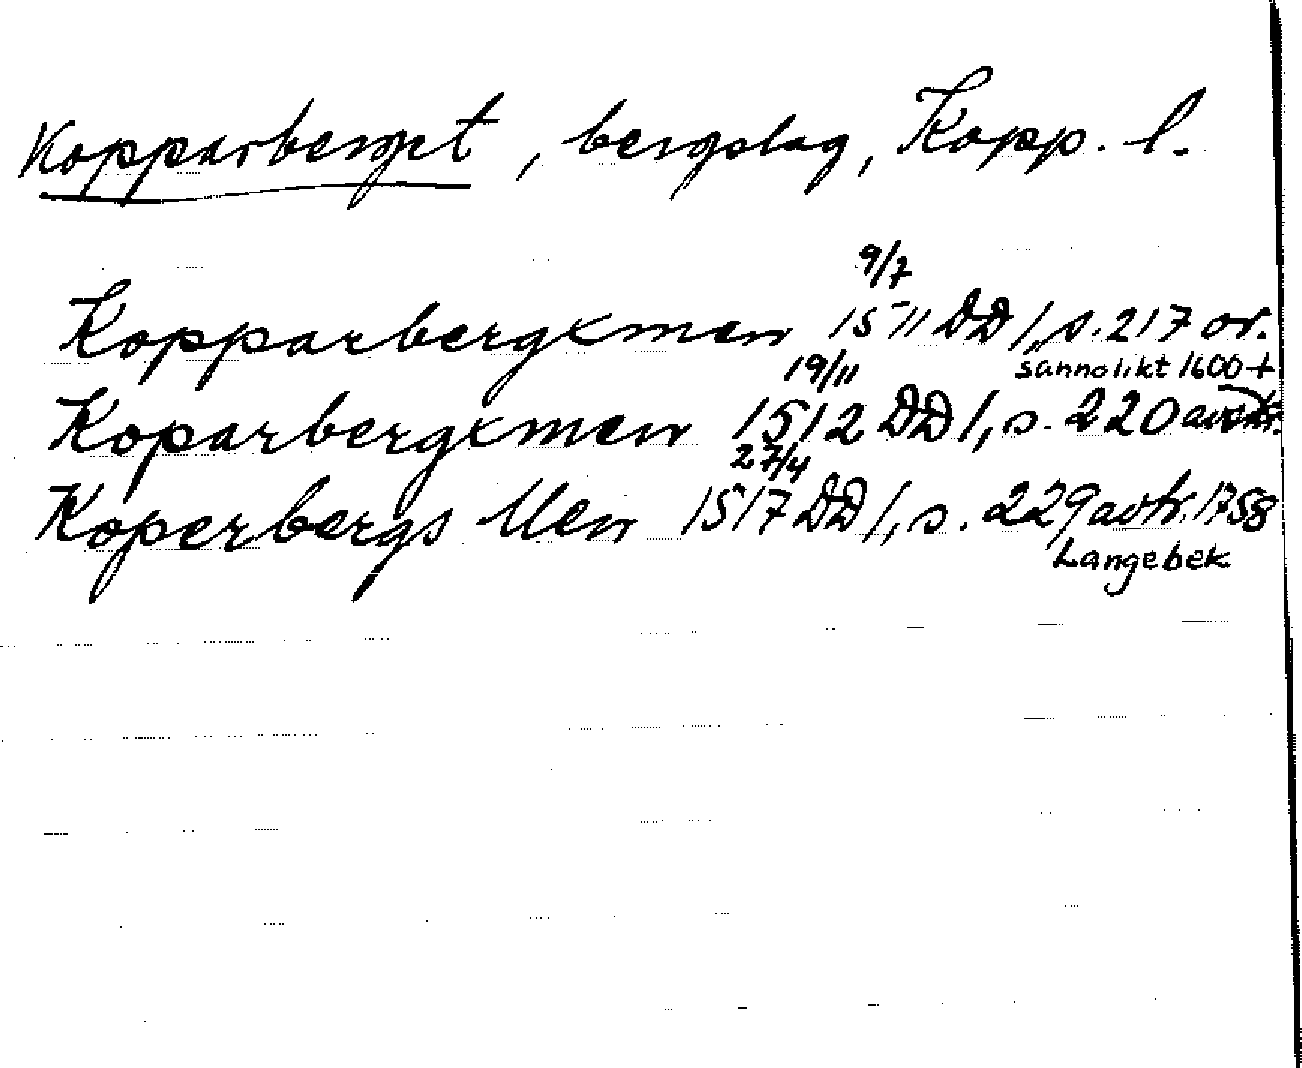 Kopparberget, bergslag, Kopp. l.
9/7
Kopparbergxmen 1511 DD 1, s. 217 or.
sannolikt 1600-t
19/11
Koparbergxmen 1512 DD 1, s. 220 avskr.
27/4
Koperbergs Men 1517 DD 1, s. 229 avtr. 1758
Langebek